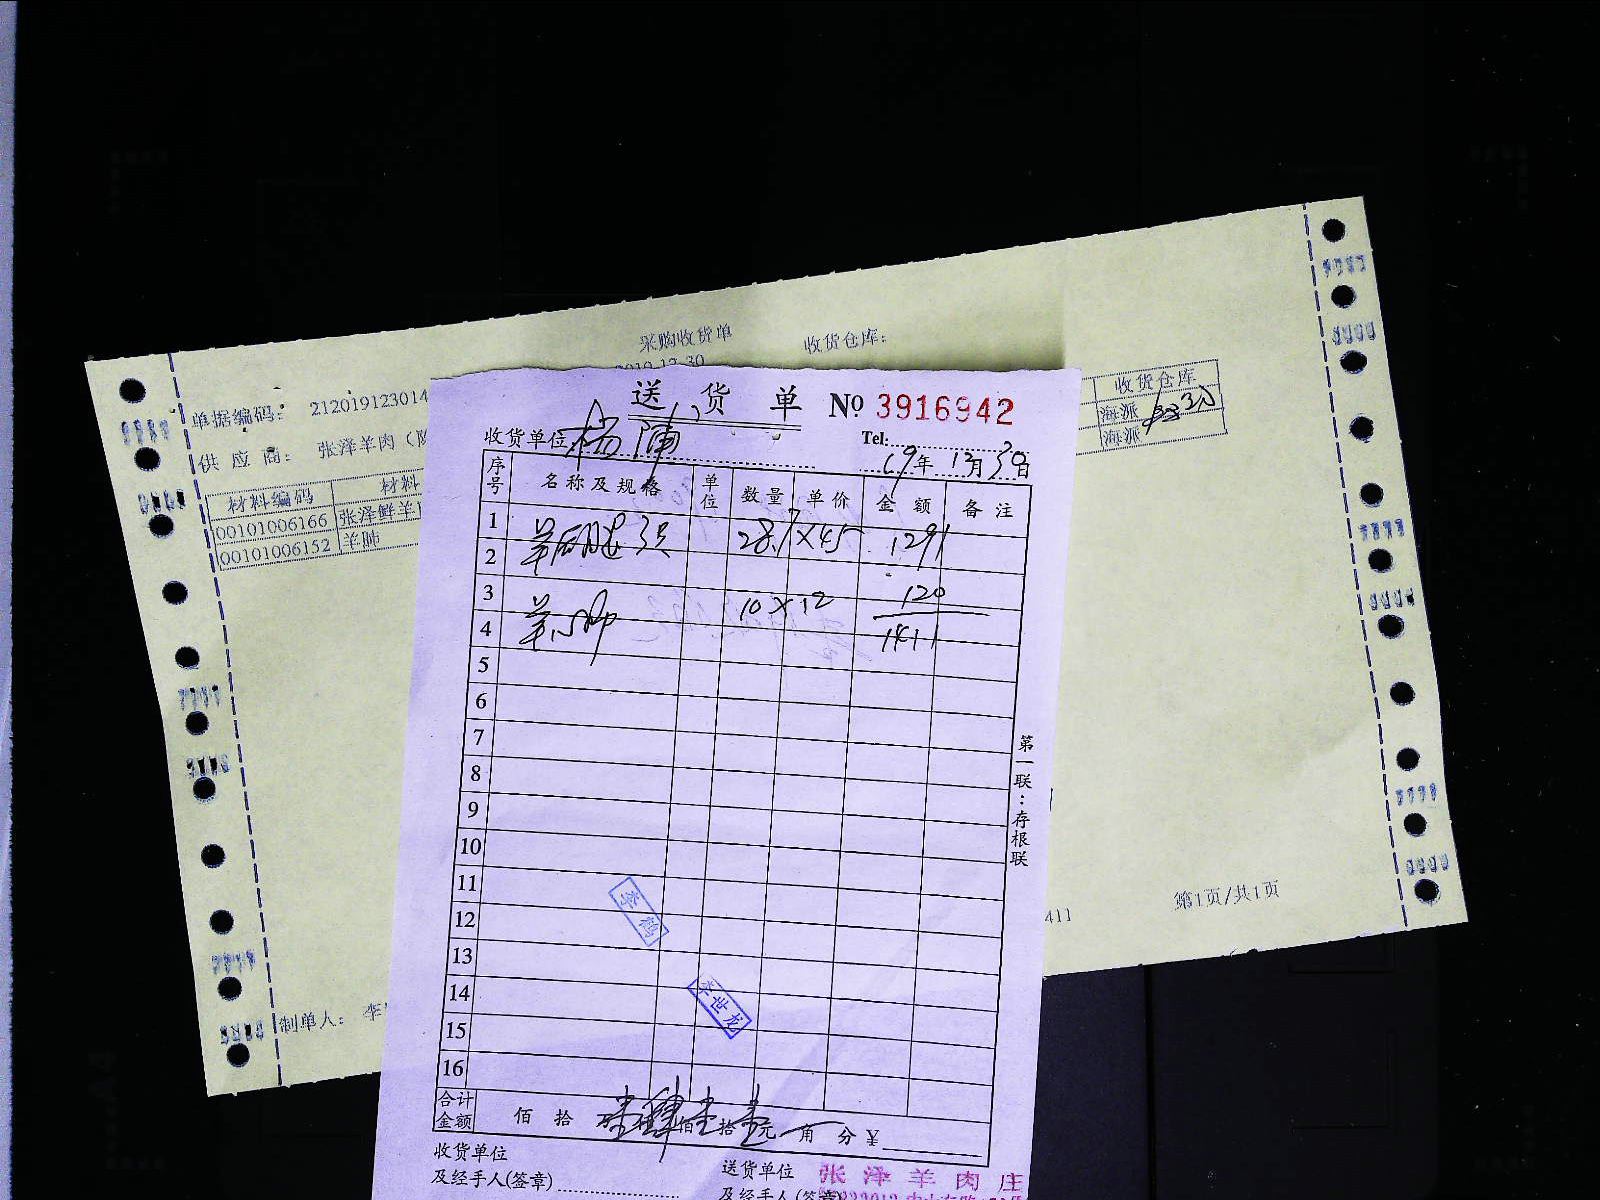 采购收货单
收货仓库:
2019-12-30
单据编码: 212019123014
供 应 商: 张泽羊肉(
材料编码 材料 收货仓库
00101006166 张泽鲜羊 海派
00101006152 羊肺 海派
送 货 单 № 3916942
收货单位 Tel:
19年 12月 30日
序号 名称及规格 单位 数量 单价 金额 备注
1 羊后腿 28.7×45 1291
2
3 羊心肺 10×12 120
4 1411
5
6
7
8
9
10
11
12
13
14
15
16
第一联:存根联
李鹤
李世龙
合计金额 佰 拾 壹仟肆佰壹拾壹元 角 分 ¥
收货单位
及经手人(签章)
送货单位
及经手人(签章)
张泽羊肉庄
制单人: 李
411
第1页/共1页